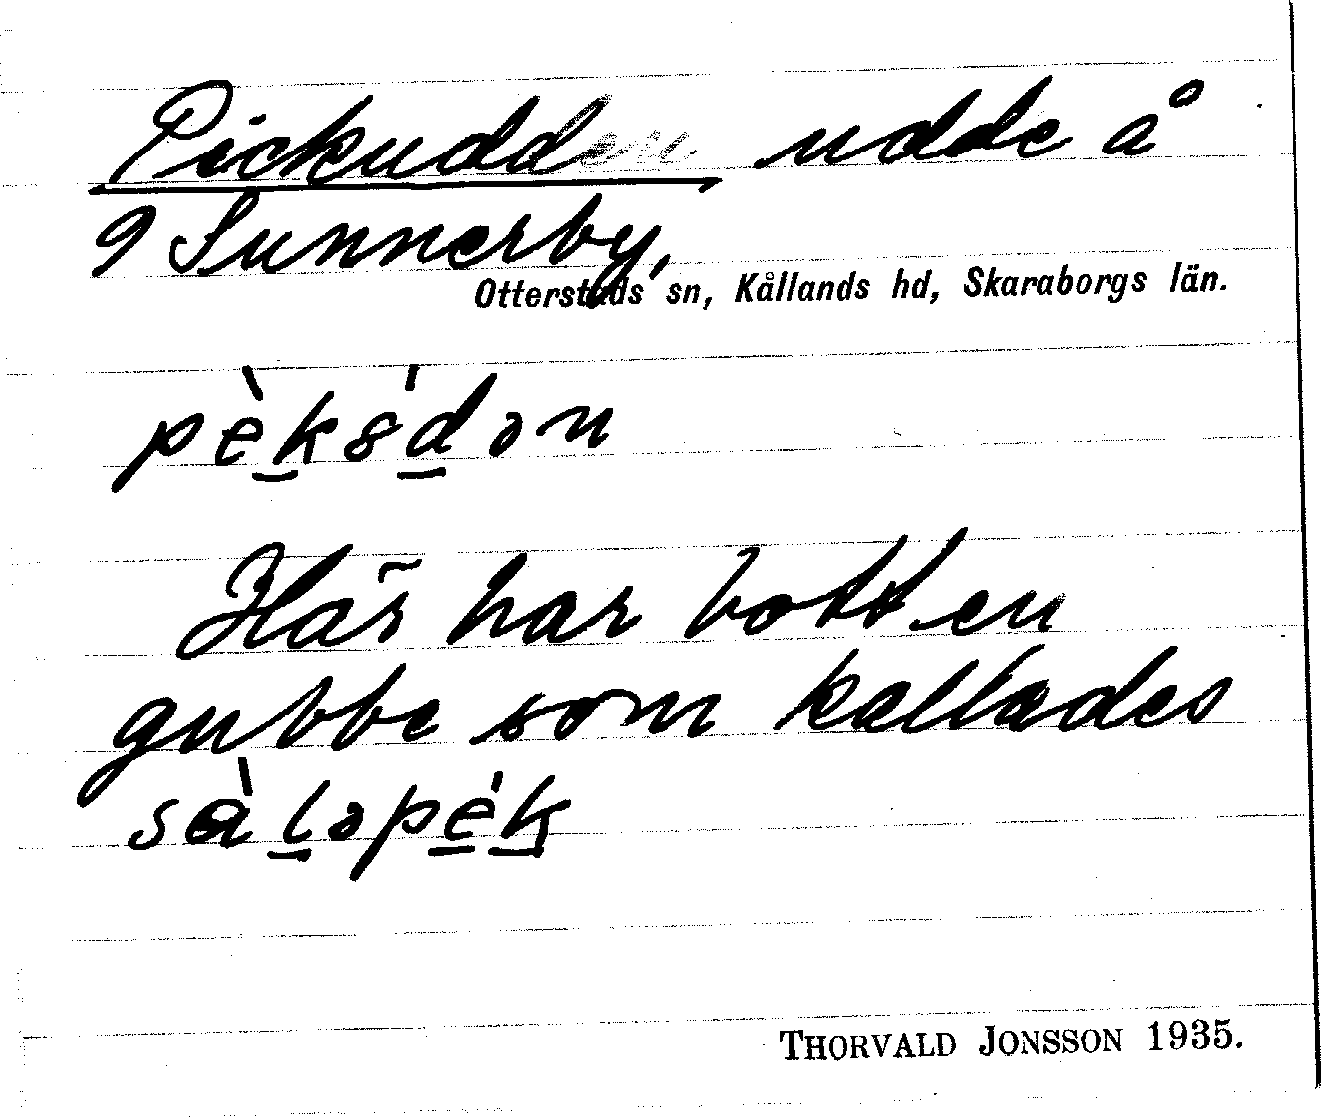 Pickudden udde å
9 Sunnerby,
Otterstads sn, Kållands hd, Skaraborgs län.
pèk8́dən
Här har bott en
gubbe som kallades
sàləpék
THORVALD JONSSON 1935.